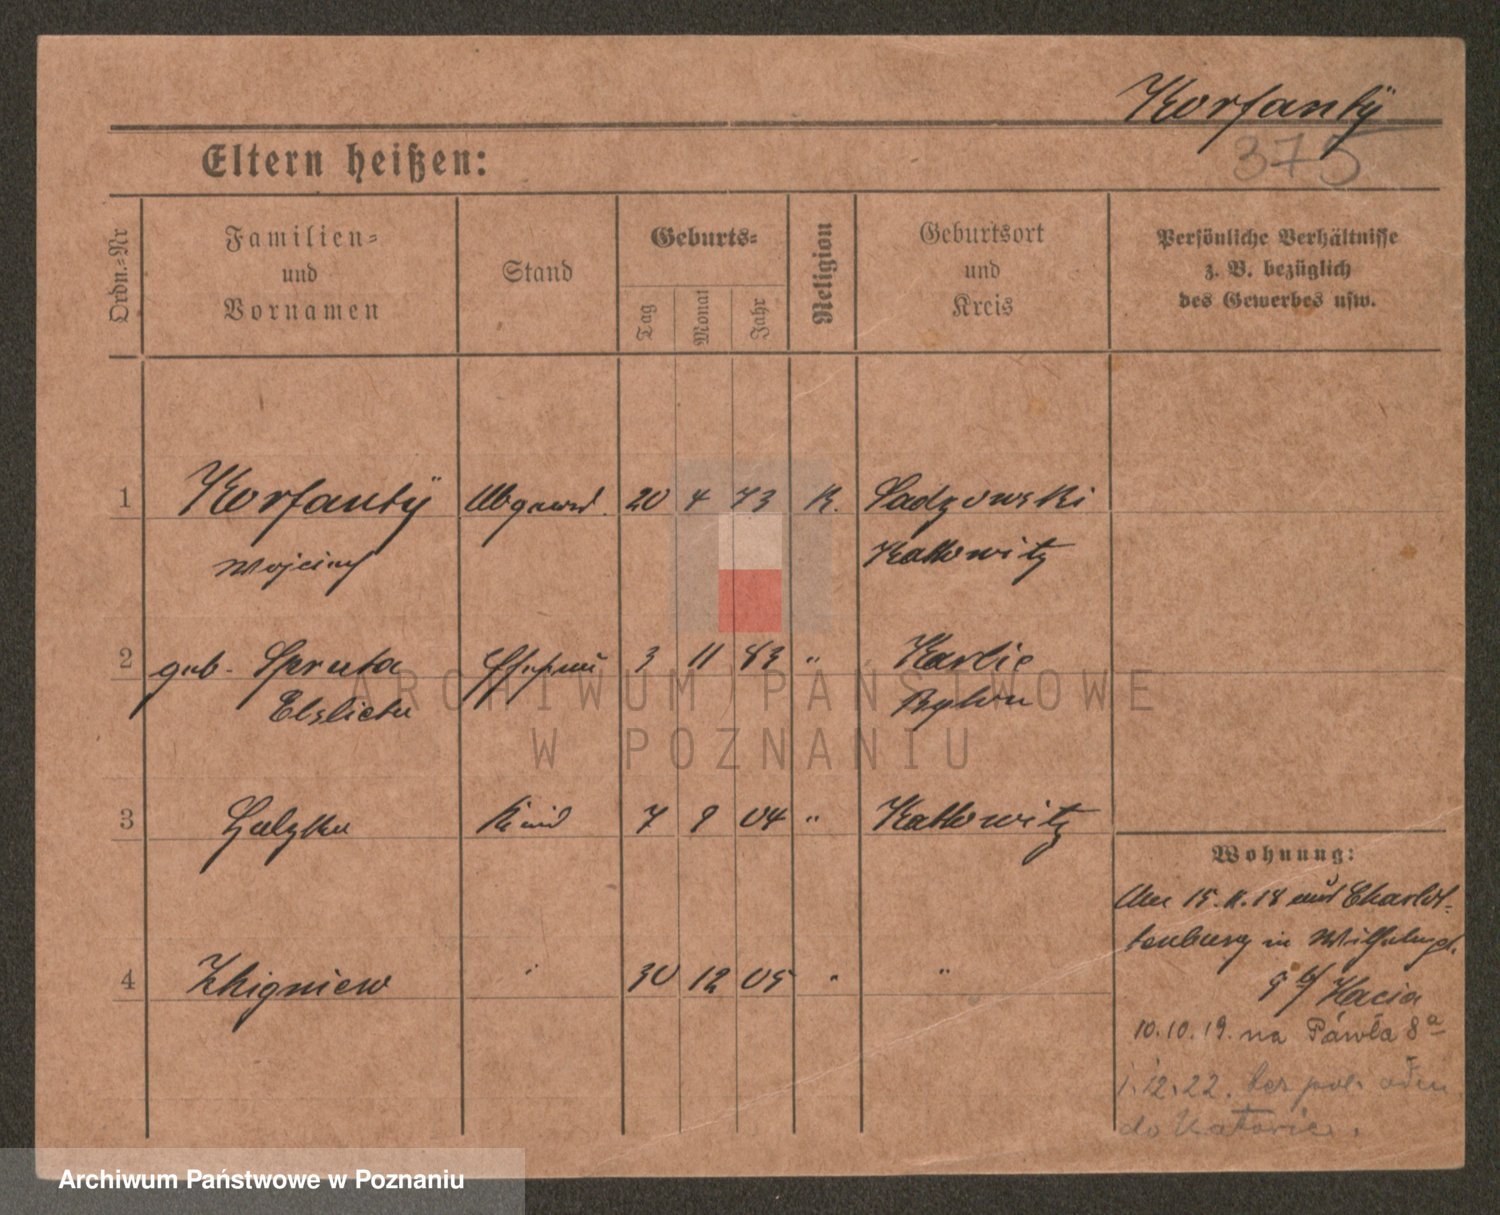 Korfanty
375
Eltern heißen:
Ordn.-Nr
Familien- und Vornamen
Stand
Geburts-
Tag
Monat
Jahr
Religion
Geburtsort und Kreis
Persönliche Verhältnisse
z. B. bezüglich
des Gewerbes usw.
1 Korfanty 20 4 73 K. Sadzowski
Kattowitz
2 geb. 3 11 83 "
3 Kind 7 9 04 " Kattowitz
4 Zbigniew " 30 12 05 " "
Wohnung:
15.11.18 aus Charlot-
tenburg in
Kacia
10.10.19. na Pawła 8a
1.12.22.
do Katowic.
ARCHIWUM PAŃSTWOWE
W POZNANIU
Archiwum Państwowe w Poznaniu